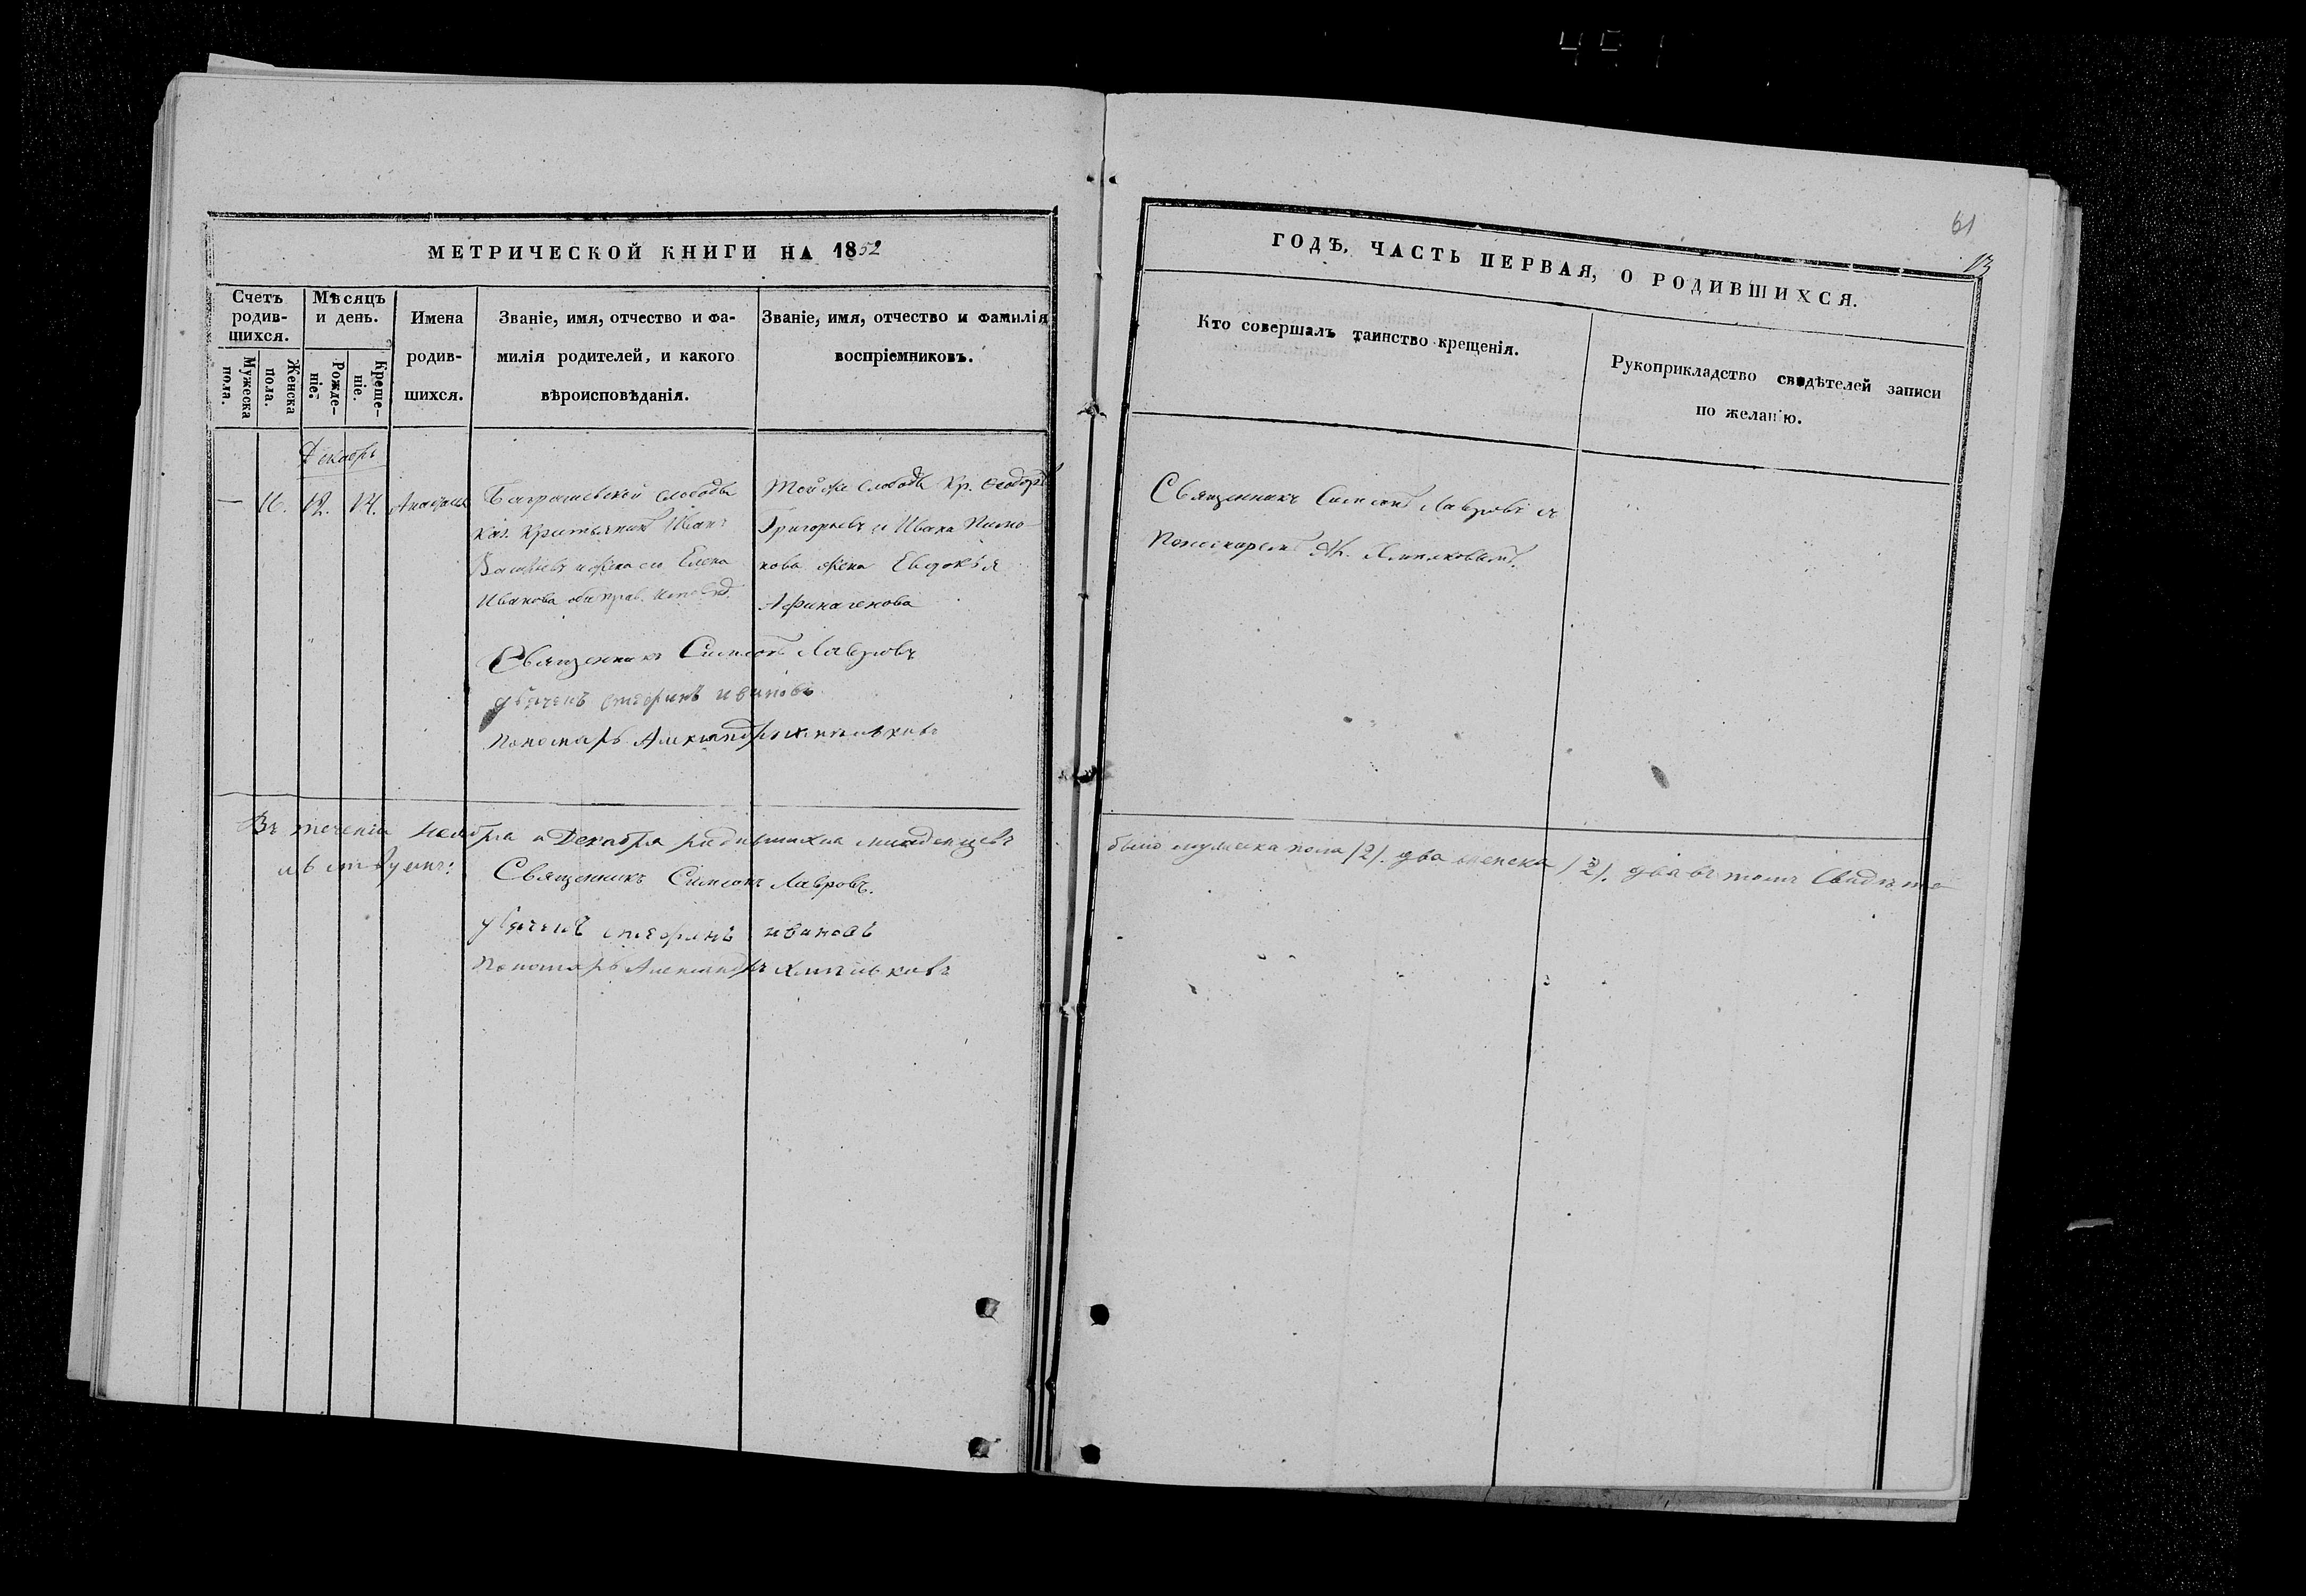 451
61
13
МЕТРИЧЕСКОЙ КНИГИ НА 1852
Счетъ родив-
шихся.
Мѣсяцъ
и день.
Мужеска
пола.
Женска
пола.
Рожде-
ніе.
Креще-
ніе.
Имена
родив-
шихся.
Званіе, имя, отчество и фа-
милія родителей, и какого
вѣроисповѣданія.
Званіе, имя, отчество и фамилія
воспріемниковъ.
Декабрь
— 16. 12. 14.
слободы
каз. крестьянинъ Иванъ
и жена его Елена
Иванова оба прав. исповѣд.
Той же слободы Кр. Ѳеодоръ
Григорьевъ и Ивана
жена Евдокѣя
Священникъ Симеонъ Лавровъ
ивановъ
пономарь Александръ
Въ теченіи Ноября и Декабря родившихся младенцевъ
Священникъ Симеонъ Лавровъ.
ивановъ
Пономарь Александръ
ГОДЪ, ЧАСТЬ ПЕРВАЯ, О РОДИВШИХСЯ.
Кто совершалъ таинство крещенія.
Рукоприкладство свидѣтелей записи
по желанію.
Священникъ Симеонъ Лавровъ съ
Пономаремъ
было мужеска пола /2/. два женска /2/. два въ томъ Свидѣте